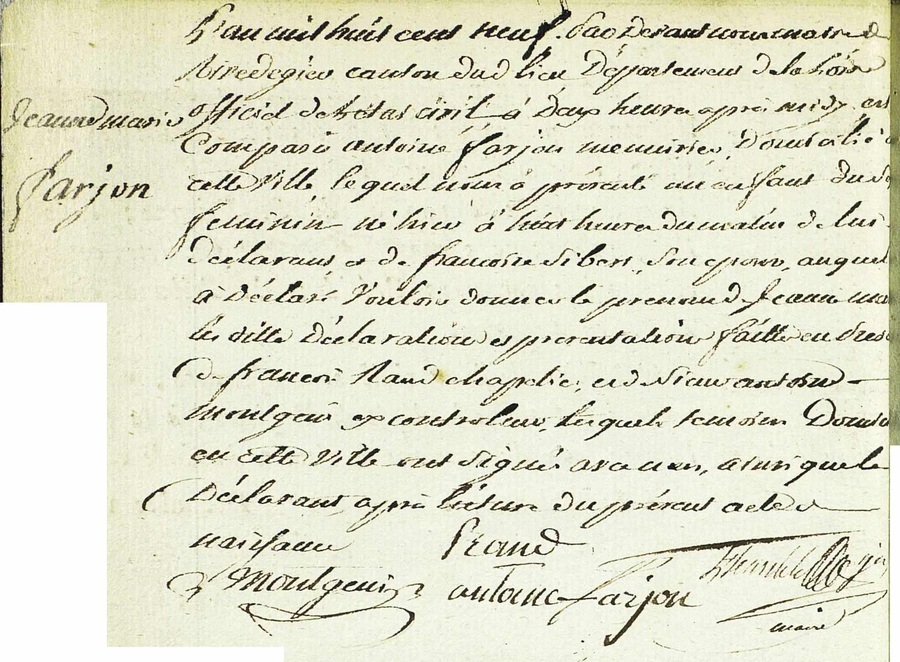 Jeanne marie
Farjon
L'an mil huit cent neuf. Pardevant nous maire de
canton dud lieu Département de la Loire
officié de l'état civil à Deux heure après midy est
Comparu antoine farjon menuisié, Domicilié
cette Ville lequel nous à présenté un enfant du
feminin né hier à huit heure du matin de lui
déclarant et de francoise Sibert, Son epouse, auquel
à Déclaré Vouloir donner le prenom de Jeanne ma
les ditte Déclaration et presentation faitte en
de francois chapelier, et de Sieur antoine
montgeui ex controleur, lesquels temoins Domi
en cette Ville ont Signé avec nous, ainsi que le
Déclarant, après lecture du présent acte de
naissance
Montgeui antoine Farjon
maire